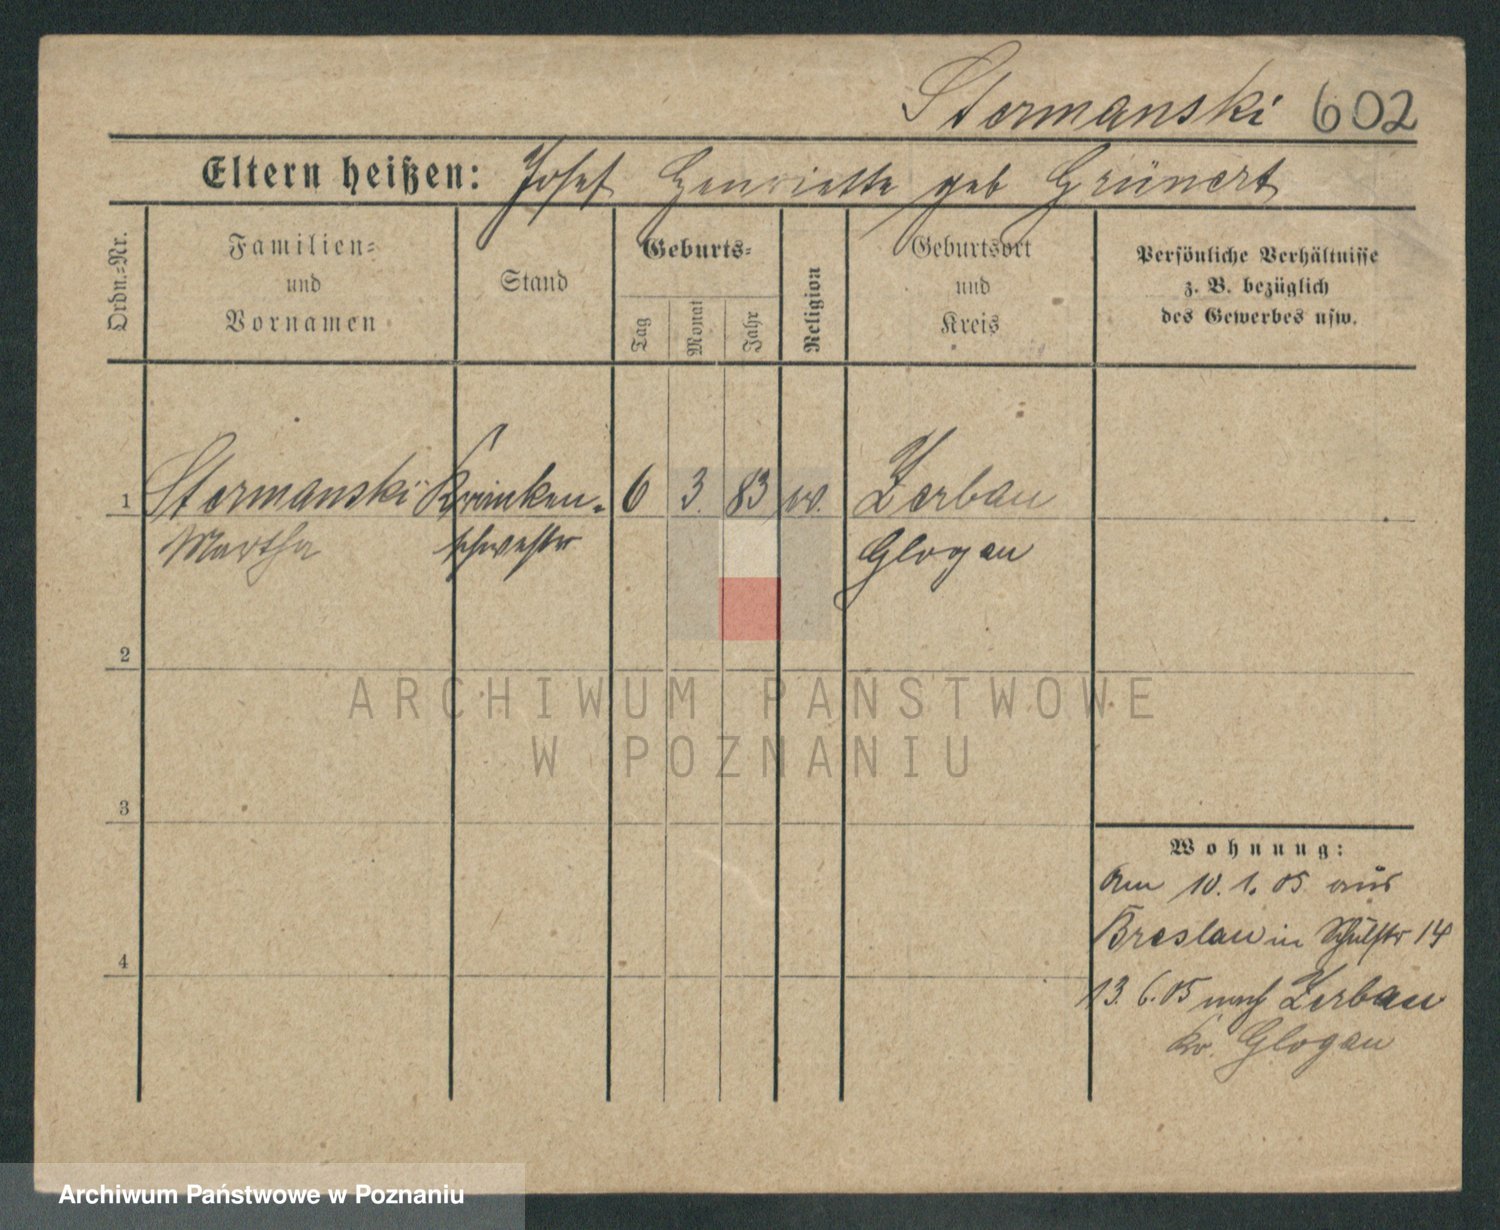 Stermanski 602
Eltern heißen: Josef Henriette geb Grünert
Ordn.=Nr.
Familien=
und
Vornamen
Stand
Geburts=
Tag
Monat
Jahr
Religion
Geburtsort
und
Kreis
Persönliche Verhältnisse
z. B. bezüglich
des Gewerbes usw.
1 Stermanski Kranken- 6 3. 83 ev. Zerbau
Martha schwester Glogau
2
ARCHIWUM PAŃSTWOWE
W POZNANIU
3
Wohnung:
Am 10.1.05 aus
Breslau in Schulstr 14
4
13.6.05 nach Zerbau
Kr. Glogau
Archiwum Państwowe w Poznaniu